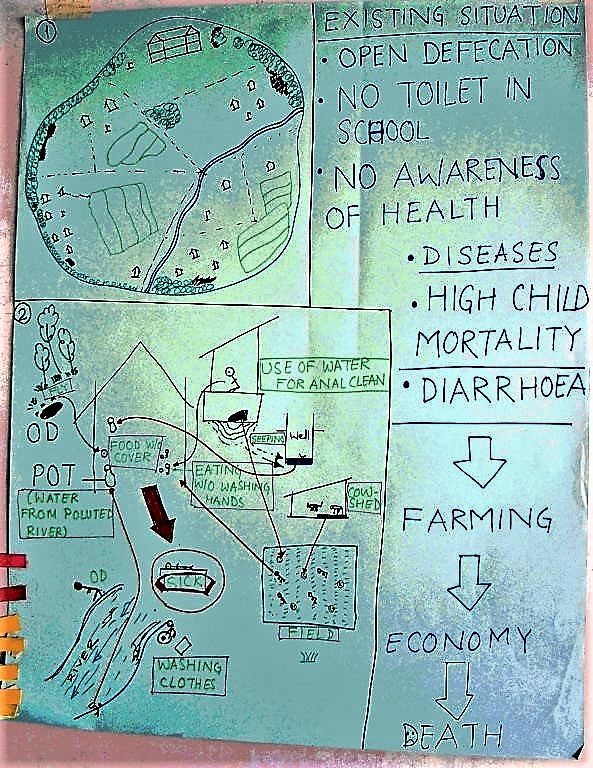 ①
EXISTING SITUATION
• OPEN DEFECATION
• NO TOILET IN
SCHOOL
• NO AWARENESS
OF HEALTH
• DISEASES
• HIGH CHILD
MORTALITY
• DIARRHOEA
FARMING
ECONOMY
DEATH
②
USE OF WATER
FOR ANAL CLEAN
OD
FOOD W/O
COVER
SEEPING
Well
POT
(WATER
FROM POLUTED
RIVER)
EATING
W/O WASHING
HANDS
COW-
SHED
OD
SICK
FIELD
RIVER
WASHING
CLOTHES